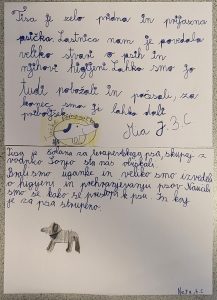 Tisa je zelo pridna in prijazna
psička. Lastnica nam je povedala
veliko stvari o psih in
njihovi higieni. Lahko smo jo
tudi božali in počesali, za
konec smo ji lahko dali
priboljšek.
Mia 3.C
Tisa je šolana za terapevtskega psa, skupaj z
vodnico Sonjo sta nas obiskali.
Brali smo uganke in veliko smo izvedeli
o higieni in prehranjevanju psov. Naučili
smo se kako se pristopi k psu in kaj
je za psa strupeno.
Neža 3.C